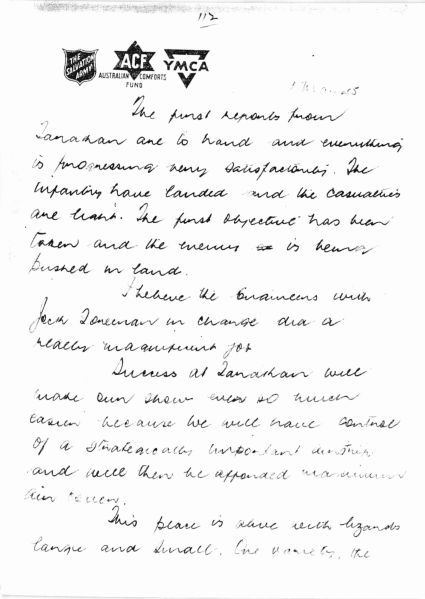 112
THE SALVATION ARMY
ACF
AUSTRALIAN COMFORTS FUND
YMCA
The first reports from
Tarakan are to hand and everything
is progressing very satisfactorily. The
infantry have landed and the casualties
are light. The first objective has been
taken and the enemy is being
pushed in land.
I believe the Engineers with
Jack Foreman in charge did a
really magnificent job
Success at Tarakan will
make our show ever so much
easier because we will have control
of a strategically important airstrip
and will then be afforded maximum
air cover.
This place is alive with lizards
large and small. One variety, the